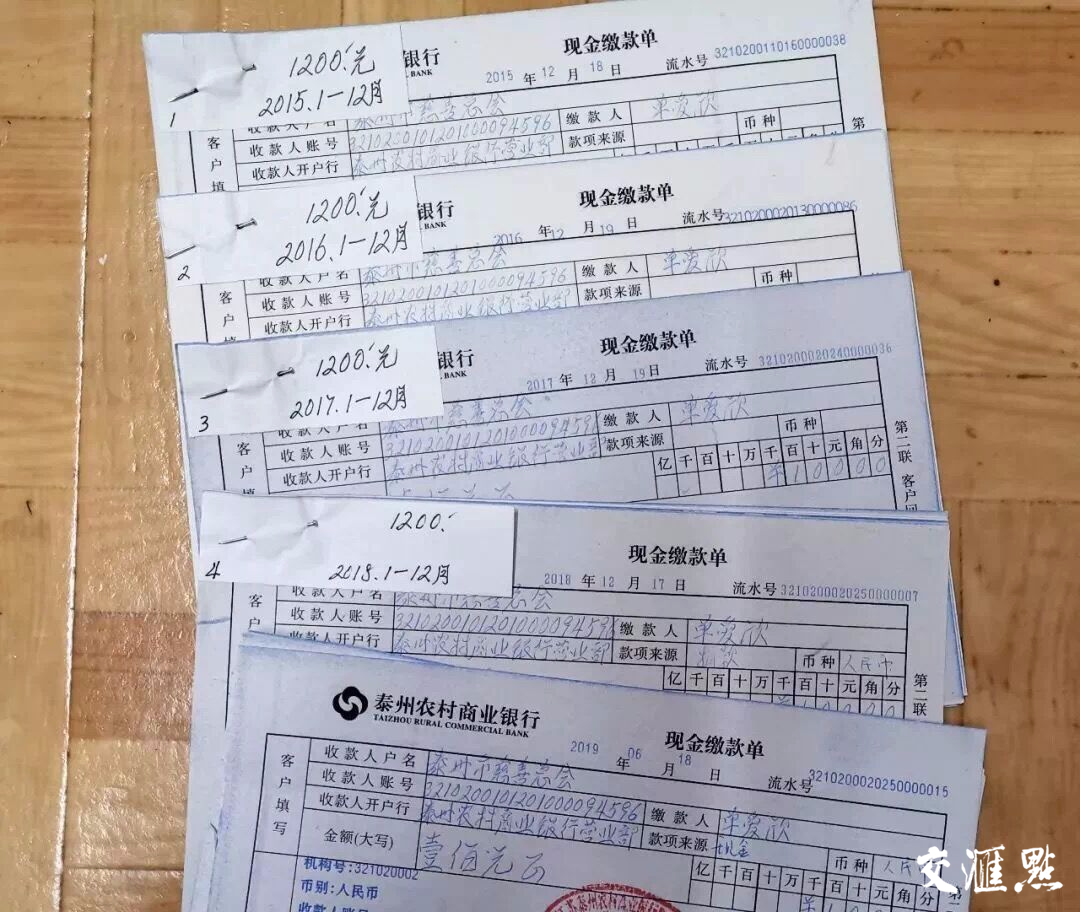 1200.元
2015.1—12月
1
银行
BANK
现金缴款单
2015 年 12 月 18 日
流水号 3210200110160000038
客户填
收款人户名 泰州市慈善总会
收款人账号 3210200101201000094596
收款人开户行 泰州农村商业银行营业部
缴款人 单爱欣
币种
款项来源
第
1200.元
2016.1—12月
2
银行
BANK
现金缴款单
2016 年 12 月 19 日
流水号 3210200020130000086
客户填
收款人户名 泰州市慈善总会
收款人账号 3210200101201000094596
收款人开户行 泰州农村商业银行营业部
缴款人 单爱欣
币种
款项来源
1200.元
2017.1—12月
3
银行
BANK
现金缴款单
2017 年 12 月 19 日
流水号 3210200020240000036
客户填
泰州市慈善总会
收款人账号 321020010120100009459
收款人开户行 泰州农村商业银行营业部
缴款人 单爱欣
币种
款项来源
亿千百十万千百十元角分
10000
第二联
客户回
1200.
2018.1—12月
4
现金缴款单
2018 年 12 月 17 日
流水号 3210200020250000007
客户
收款人户名 泰州市慈善总会
收款人账号 3210200101201000094596
收款人开户行 泰州农村商业银行营业部
缴款人 单爱欣
款项来源
币种 人民币
亿千百十万千百十元角分
第二联
泰州农村商业银行
TAIZHOU RURAL COMMERCIAL BANK
现金缴款单
2019 年 06 月 18 日
流水号 3210200020250000015
客户填写
收款人户名 泰州市慈善总会
收款人账号 3210200101201000094596
收款人开户行 泰州农村商业银行营业部
缴款人 单爱欣
款项来源 现金
币种 人民
金额(大写) 壹佰元正
亿千百十万千百十元角
机构号:321020002
币别:人民币
收款人账
交滙點